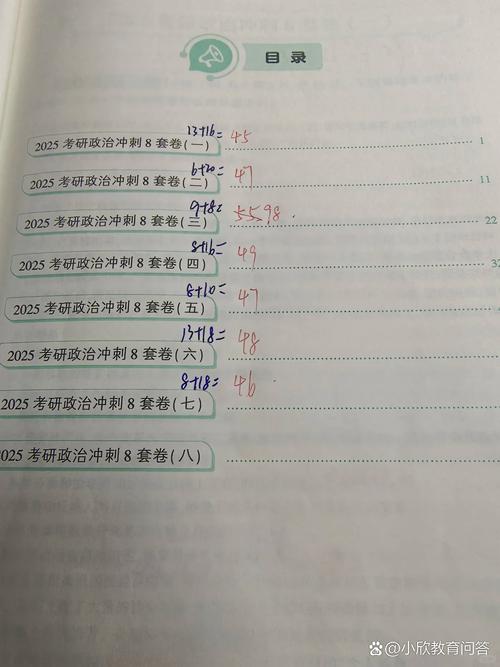 目录
13+16= 45
2025 考研政治冲刺 8 套卷(一) 1
6+20= 47
2025 考研政治冲刺 8 套卷(二) 11
9+8= 55.98
2025 考研政治冲刺 8 套卷(三) 22
8+16= 49
2025 考研政治冲刺 8 套卷(四) 32
8+10= 47
2025 考研政治冲刺 8 套卷(五)
13+18= 48
2025 考研政治冲刺 8 套卷(六)
8+18= 46
2025 考研政治冲刺 8 套卷(七)
025 考研政治冲刺 8 套卷(八)
小欣教育问答